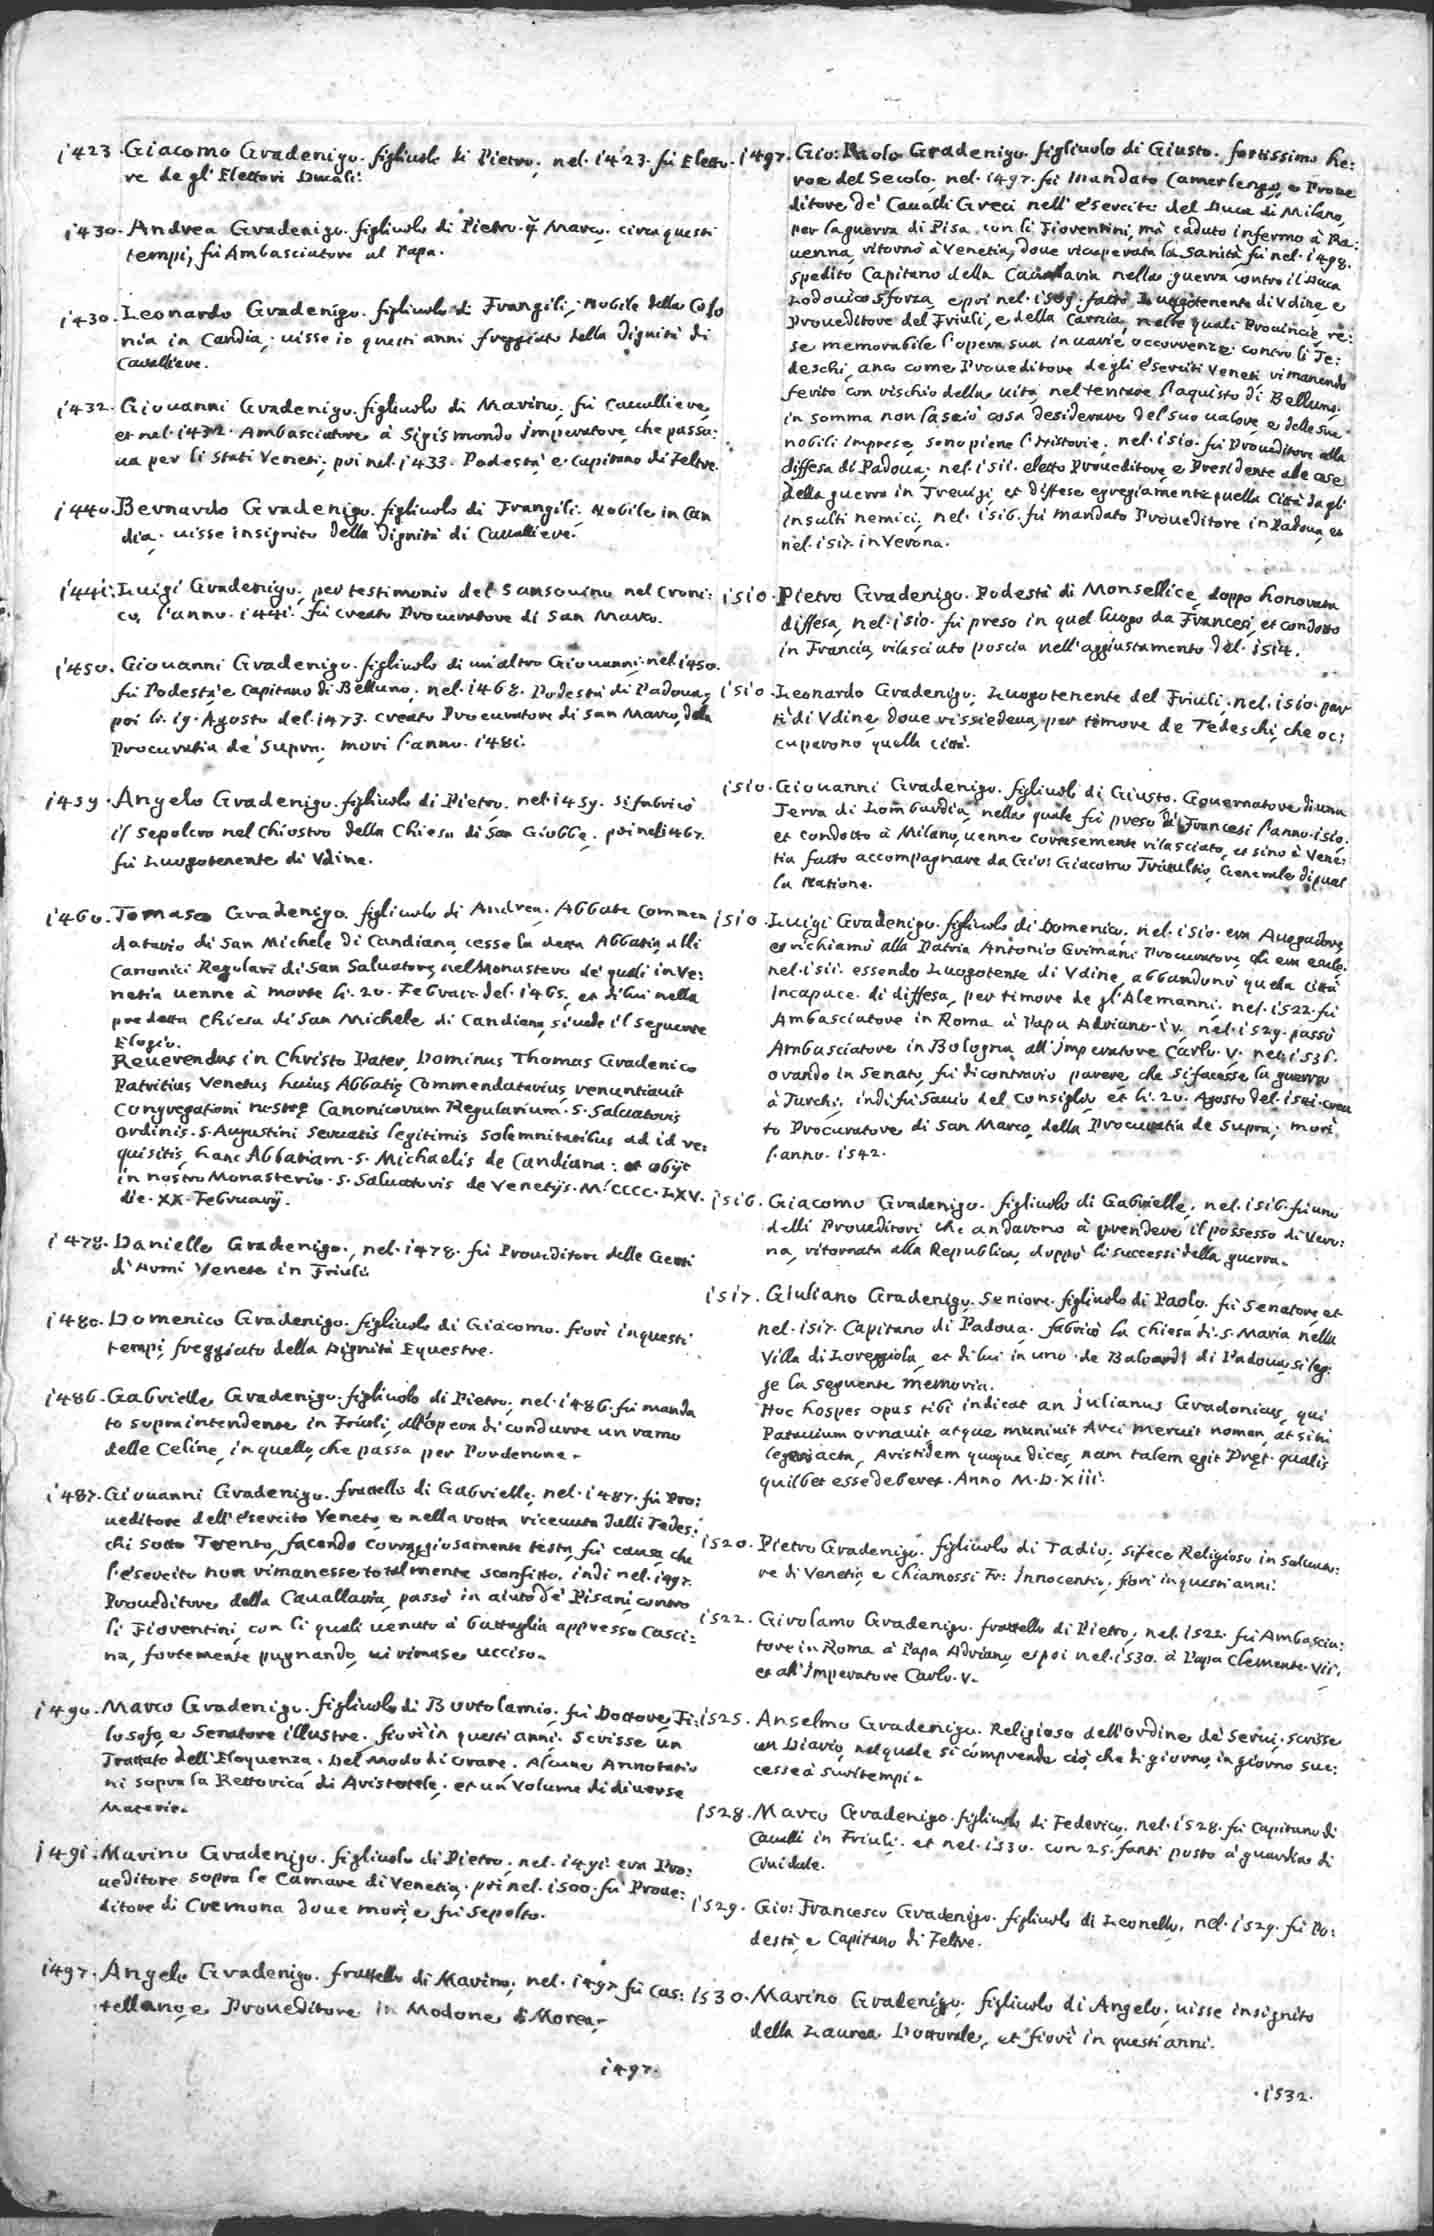 1423. Giacomo Gradenigo. figliuolo di Pietro, nel. 1423. fù Eletto-
re de gl' Elettori Ducali.
1430. Andrea Gradenigo. figliuolo di Pietro. q. Marco, circa questi
tempi, fù Ambasciatore al Papa.
1430. Leonardo Gradenigo. figliuolo di Frangili, Nobile della Colo
nia in Candia, uisse in questi anni freggiato della dignità di
Cavalliere.
1432. Giouanni Gradenigo. figliuolo di Marino, fù Cauulliere,
et nel. 1432. Ambasciatore à Sigismondo Imperatore, che passa:
ua per li stati Veneti, poi nel. 1433. Podestà e Capitano di Feltre.
1440. Bernardo Gradenigo. figliuolo di Frangili, Nobile in Can
dia, uisse insignito della dignità di Cauulliere.
1441. Luigi Gradenigo, per testimonio del Sansouino nel Croni:
co, l'anno. 1441. fù creato Procuratore di San Marco.
1450. Giouanni Gradenigo. figliuolo di un'altro Giouanni, nel. 1450.
fù Podestà e Capitano di Belluno, nel. 1468. Podestà di Padoua,
poi li. 19. Agosto del. 1473. creato Procuratore di San Marco, della
Procuratia de Supra, morì l'anno. 1481.
1459. Angelo Gradenigo. figliuolo di Pietro, nel. 1459. si fabricò
il sepolcro nel Chiostro della Chiesa di San Giobbe, poi nel 1467.
fù Luogotenente di Vdine.
1460. Tomaso Gradenigo. figliuolo di Andrea, Abbate Commen
datario di San Michele di Candiana, cesse la detta Abbatia alli
Canonici Regolari di San Saluatore, nel Monastero de' quali in Ve:
netia uenne à morte li. 20. Febraro del. 1465, et di lui nella
predetta Chiesa di San Michele di Candiana, si uede il seguente
Elogio.
Reuerendus in Christo Pater, Dominus Thomas Gradenico
Patritius Venetus huius Abbatię Commendatarius, renuntiauit
Congregationi nostrę Canonicorum Regularium. S. Saluatoris
ordinis. S. Augustini seruatis legitimis solemnitatibus ad id re:
quisitis, hanc Abbatiam. S. Michaelis de Candiana: et obijt
in nostro Monasterio. S. Saluatoris de Venetijs. M.CCCC.LXV.
die. XX. Februarij.
1478. Danielle Gradenigo, nel. 1478. fù Proueditore delle Genti
d'Armi Venete in Friuli.
1480. Domenico Gradenigo. figliuolo di Giacomo. fiorì in questi
tempi, freggiato della Dignità Equestre.
1486. Gabrielle Gradenigo. figliuolo di Pietro, nel. 1486. fù manda
to sopraintendente in Friuli, all'opera di condurre un ramo
delle Celine, in quello, che passa per Pordenone.
1487. Giouanni Gradenigo. frattello di Gabrielle, nel. 1487. fù Pro:
ueditore dell'esercito Veneto, e nella rotta riceuuta dalli Tedes:
chi sotto Trento, facendo corraggiosamente testa, fù causa, che
l'esercito non rimanesse totalmente sconfitto. indi nel. 1497.
Proueditore della Cauallaria, passò in aiuto de' Pisani, contro
li Fiorentini, con li quali uenuto à battaglia appresso Casci:
na, fortemente pugnando, ui rimase ucciso.
1490. Marco Gradenigo. figliuolo di Bortolamio, fù Dottore, Fi:
losofo, e Senatore illustre. fiorì in questi anni. Scrisse un
Trattato dell'Eloquenza. Del Modo di Orare. Alcune Annotatio
ni sopra la Rettorica di Aristotele. et un Volume di diuerse
Materie.
1491. Marino Gradenigo. figliuolo di Pietro, nel. 1491. era Pro:
ueditore sopra le Camare di Venetia, poi nel. 1500. fù Proue:
ditore di Cremona doue morì, e fù sepolto.
1497. Angelo Gradenigo. frattello di Marino, nel. 1497 fù Cas:
tellano, e Proueditore in Modone di Morea.
1497.
1497. Gio: Paolo Gradenigo. figliuolo di Giusto. fortissimo he:
roe del Secolo, nel. 1497. fù mandato Camerlengo, e Proue
ditore de' Caualli Greci nell'esercito del Duca di Milano,
per la guerra di Pisa, con li Fiorentini, mà caduto infermo à Ra:
uenna, ritornò à Venetia, doue ricuperata la sanità fù nel. 1498.
spedito Capitano della Cauallaria nella guerra contro il Duca
Lodouico Sforza, e poi nel. 1509. fatto Luogotenente di Vdine, e
Proueditore del Friuli, e della Carnia, nelle quali Prouincie, re:
se memorabile l'opera sua in uarie occorrenze contro li Te:
deschi, anco come Proueditore degli eserciti Veneti rimanendo
ferito con rischio della uita, nel tentare l'aquisto di Belluno.
in somma non lasciò cosa desiderare del suo ualore, e delle sue
nobili imprese, sono piene l'Historie, nel. 1510. fù Proueditore alla
diffesa di Padoua, nel. 1511. eletto Proueditore, e Presidente alle cose
della guerra in Treuigi, et diffese egregiamente quella Città da gli
insulti nemici, nel. 1516. fù mandato Proueditore in Padoua, et
nel. 1517. in Verona.
1510. Pietro Gradenigo. Podestà di Monsellice, doppo honorata
diffesa, nel. 1510. fù preso in quel luogo da Francesi, et condotto
in Francia, rilasciato poscia nell'aggiustamento del. 1514.
1510. Leonardo Gradenigo, Luogotenente del Friuli, nel. 1510. par
tì di Vdine, doue rissiedeua, per timore de Tedeschi, che oc:
cuparono quella città.
1510. Giouanni Gradenigo. figliuolo di Giusto, Gouernatore di una
Terra di Lombardia, nella quale fù preso da Francesi l'anno. 1510.
et condotto à Milano, uenne cortesemente rilasciato, et sino à Vene:
tia fatto accompagnare da Gio: Giacomo Triuultio, Generale di quel
la Natione.
1510. Luigi Gradenigo. figliuolo di Domenico, nel. 1510. era Auogadore,
et richiamò alla Patria Antonio Grimani Procuratore, che era esule.
nel. 1511. essendo Luogotente di Vdine, abbandonò quella città
Incapace di diffesa, per timore de gl'Alemanni, nel. 1522. fù
Ambasciatore in Roma à Papa Adriano. iv. nel. 1529. passò
Ambasciatore in Bologna all'Imperatore Carlo. V. nel. 1536.
orando in Senato, fù di contrario parere, che si facesse la guerra
à Turchi, indi fù Sauio del Consiglio, et li. 20. Agosto del. 1541. crea
to Procuratore di San Marco, della Procuratia de Supra, morì
l'anno. 1542.
1516. Giacomo Gradenigo. figliuolo di Gabrielle, nel. 1516. fù uno
delli Proueditori, che andarono à prendere il possesso di Vero:
na, ritornata alla Republica, doppò li successi della guerra.
1517. Giuliano Gradenigo. Seniore. figliuolo di Paolo, fù Senatore, et
nel. 1517. Capitano di Padoua. fabricò la Chiesa di. S. Maria nella
Villa di Loreggiola, et di lui in uno de Baloardi di Padoua, si leg:
ge la seguente memoria.
Hoc hospes opus tibi indicat an Julianus Gradonicus, qui
Patauium ornauit, atque muniuit Arci meruit nomen, at si hi
legeris acta, Aristidem quoque dices, nam talem egit Pręt. qualis
quilbet esse deberet. Anno M.D.Xiii.
1520. Pietro Gradenigo. figliuolo di Tadio, si fece Religioso in Saluato:
re di Venetia, e chiamossi Fr: Innocentio, fiorì in questi anni.
1522. Girolamo Gradenigo. frattello di Pietro, nel. 1522. fù Ambascia:
tore in Roma à Papa Adriano, et poi nel. 1530. à Papa Clemente. Vii.
et all'Imperatore Carlo. V.
1525. Anselmo Gradenigo. Religioso dell'ordine de Serui. scrisse
un Diario, nel quale si comprende ciò, che di giorno, in giorno suc:
cesse à suoi tempi.
1528. Marco Gradenigo. figliuolo di Federico, nel. 1528. fù Capitano di
Caualli in Friuli. et nel. 1530. con 25. fanti posto à guardia di
Ciuidale.
1529. Gio: Francesco Gradenigo. figliuolo di Leonello, nel. 1529. fù Po:
destà, e Capitano di Feltre.
1530. Marino Gradenigo, figliuolo di Angelo, uisse insignito
della Laurea Dottorale, et fiorì in questi anni.
1532.